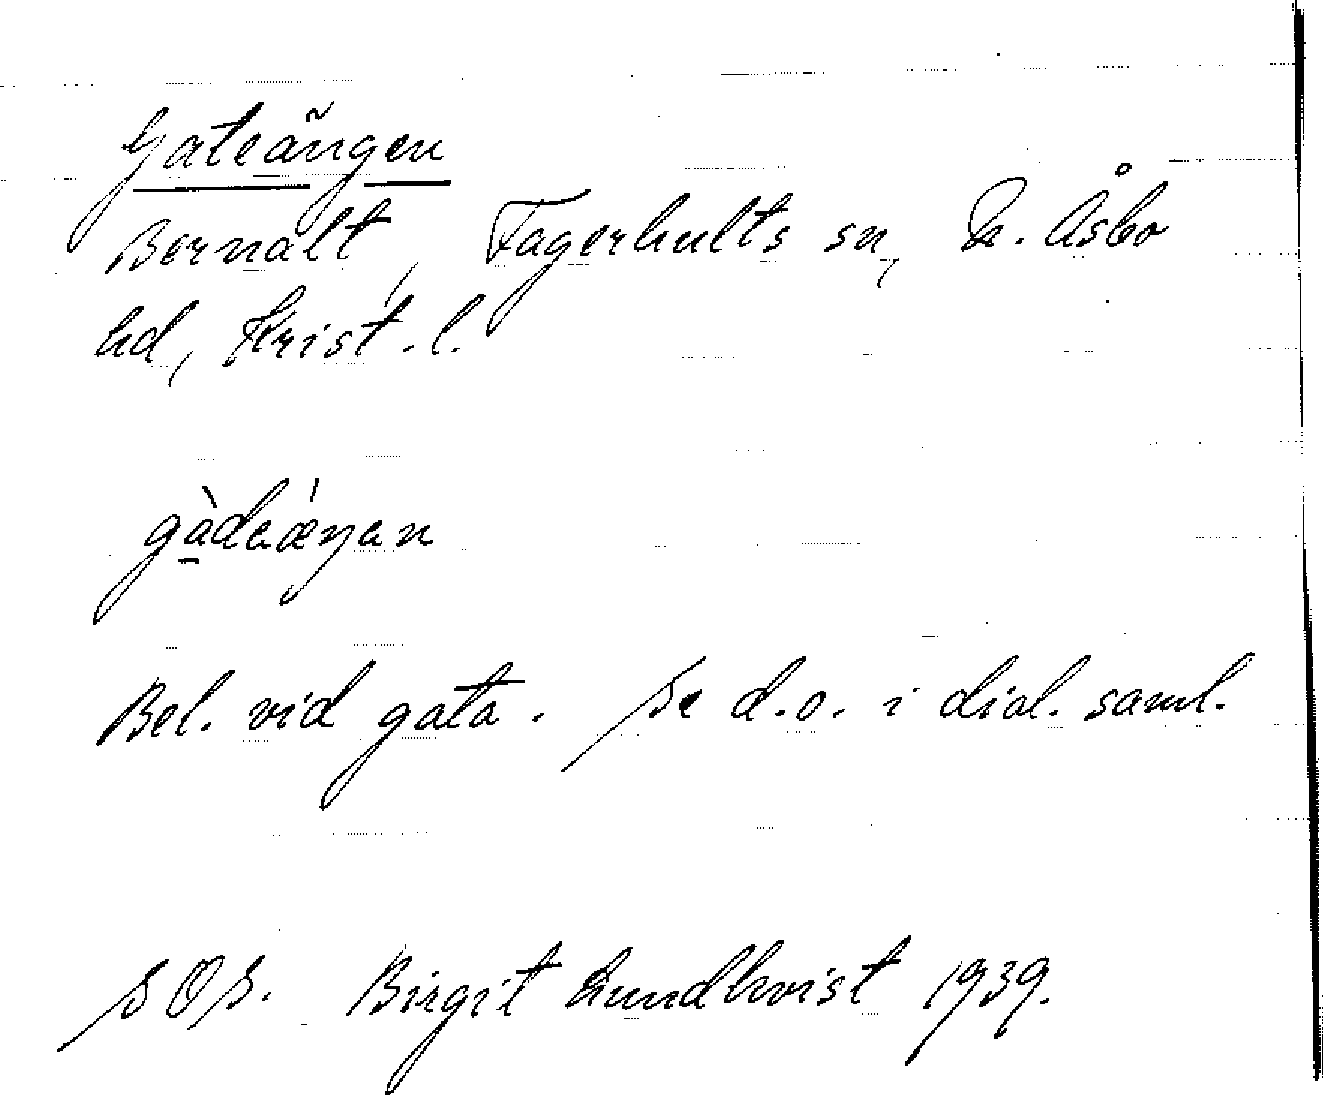 Gateängen
Bernalt, Fagerhults sn, N. Åsbo
hd, Krist. l.
gàdeǽŋen
Bel. vid gata. Se d.o. i dial. saml.
SOS. Birgit Lundkvist 1939.